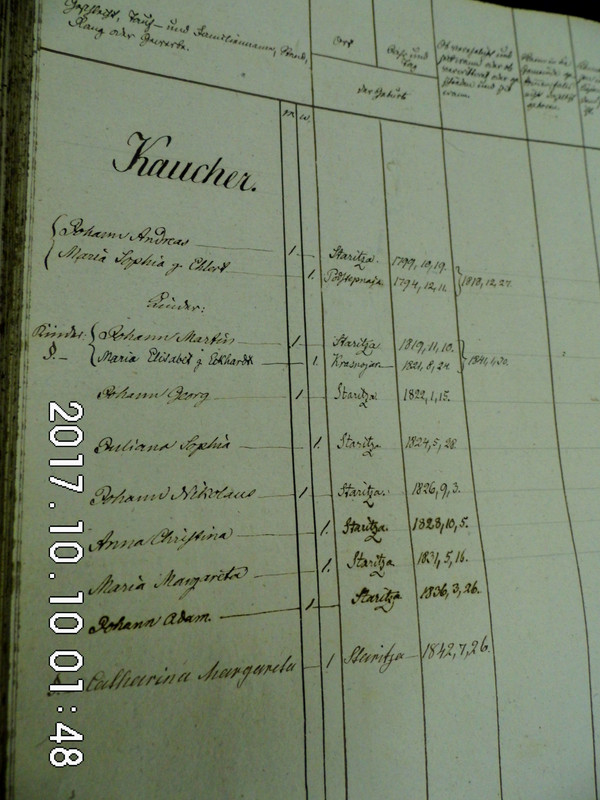 Geschlecht, Tauf- und Familienname, Stand,
Rang oder Gewerbe.
Ort
Jahr und Tag
der Geburt
m. w.
Kaucher.
Johann Andreas 1. Staritza 1799,10,19.
Maria Sophia g. Ehlert 1. 1794,12,11. 1818,12,27.
Kinder:
Kinder Johann Martin 1. Staritza 1819,11,10.
S. Maria Elisabet g. Eckhardt 1. Krasnojar 1821,8,24. 1841,1,30.
Johann Georg 1. Staritza 1822,1,15.
Juliana Sophia 1. Staritza 1824,5,28.
Johann Nikolaus 1. Staritza 1826,9,3.
Anna Christina 1. Staritza 1828,10,5.
Maria Margareta 1. Staritza 1831,5,16.
Johann Adam. 1. Staritza 1836,3,26.
Catharina Margareta 1 Staritza 1842,7,26.
2017.10.10 01:48